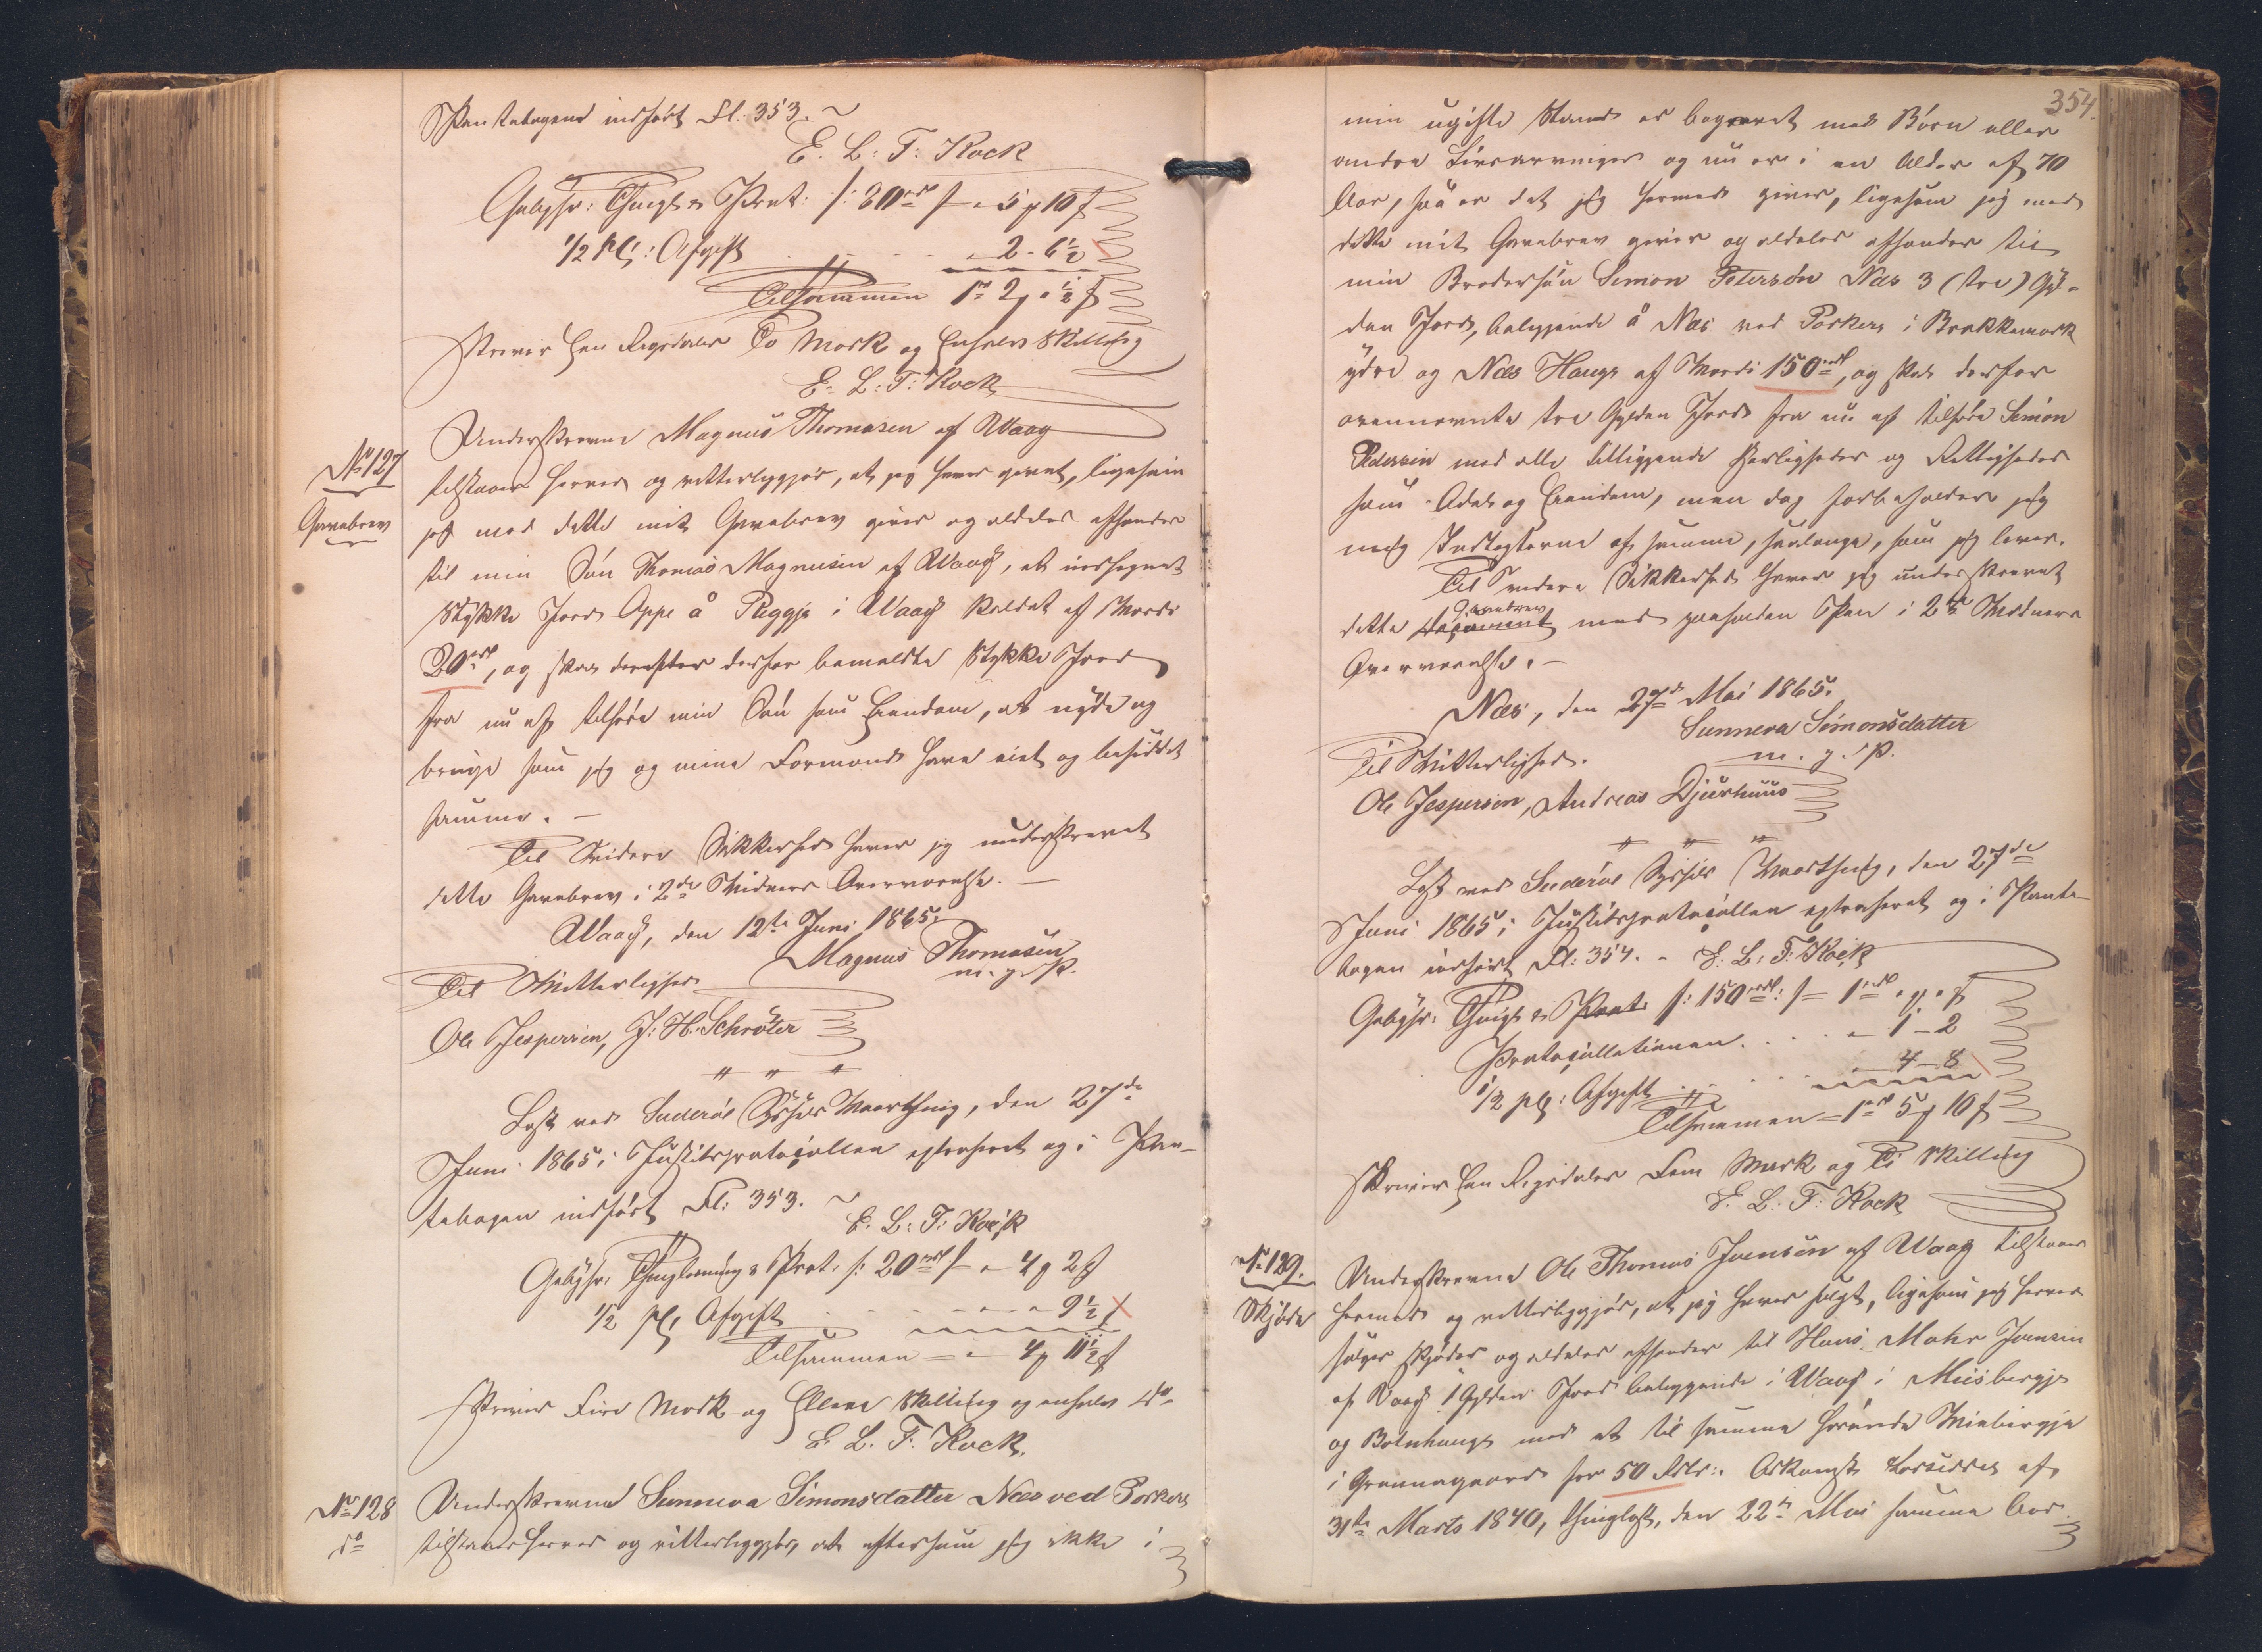 Pantebogen indført Fl: 353. ~
E. L: F: Kock
Gebyhr: Thingl & Prot: /: 80 rd /- " 5 ƒ 10 ß
1/2 pCt: Afgift . . . . " 2 - 6 1/2
Tilsammen 1 rd 2 ƒ " 1/2 ß
skriver Een Rigsdaler To Mark og Enhalv Skilling
E. L: F: Kock
No 127
Gavebrev
Underskrevne Magnus Thomasen af Waag
tilstaaer herved og vitterliggjør, at jeg haver givet, ligesom
jeg med dette mit Gavebrev giver og aldeles afhænder
til min Søn Thomas Magnusen af Waag, et indhegnet
Stykke Jord Oppe å Ryggje i Waag kaldet af Værdi
20 rd, og skal derefter derfor bemeldte Stykke Jord
fra nu af tilhøre min Søn som Eiendom, at nyde og
bruge som jeg og mine Formænd have eiet og besiddet
samme. —
Til Videre Sikkerhed haver jeg underskrevet
dette Gavebrev i 2de Vidners Overværelse. —
Waag, den 12te Juni 1865.
Magnus Thomasen
m. g. P.
Til Vitterlighed
Ole Jespersen, J: H. Schrøter
" " "
Læst ved Suderøe Syssels Vaarthing, den 27de
Juni 1865; i Justitsprotocollen extraheret og i Pan-
tebogen indført Fl: 353. ~
E. L: F: Kock
Gebyhr, Thinglæsning & Prot. /: 20 rd /- " 4 ƒ 2 ß
1/2 pCt. Afgift . . . . " " 9 1/2
Tilsammen = " 4 ƒ 11 1/2 ß
skriver Fire Mark og Elleve Skilling og enhalv do
E. L. F. Kock.
No 128
do
Underskrevne Sunneva Simonsdatter Næs ved Porkere
tilstaaer herved og vitterliggjør, at eftersom jeg ikke i
354.
min ugifte Stand er begavet med Børn eller
andre Livsarvinger og nu er i en Alder af 70
Aar, saa er det jeg hermed giver, ligesom jeg med
dette mit Gavebrev giver og aldeles afhænder til
min Brodersøn Simon Petersøn Næs 3 (tre) Gyl-
den Jord, beliggende å Næs ved Porkere i Brekkemørk
ydre og Næs Hauge af Værdi 150 rd, og skal derfor
ovennævnte tre Gylden Jord fra nu af tilhøre Simon
Petersen med alle tilliggende Herligheder og Rettigheder
som Odel og Eiendom, men dog forbeholder jeg
mig Indtægterne af samme, saalænge, som jeg lever.
Til Videre Sikkerhed haver jeg underskrevet
Gavebrev
dette Document med paaholden Pen i 2de Vidners
Overværelse. —
Næs, den 27de Mai 1865.
Sunneva Simonsdatter
m. g. P.
Til Vitterlighed.
Ole Jespersen, Andreas Djurhuus
" " "
Læst ved Suderøe Syssels Vaarthing, den 27de
Juni 1865; i Justitsprotocollen extraheret og i Pante-
bogen indført Fl: 354. - E: L: F: Kock
Gebyhr. Thingl & Prot. /: 150 rd: /- 1 rd " ƒ " ß
Protocollationen. . . . " 1 - 2
1/2 pCt: Afgift . . . . 4 - 8
Tilsammen = 1 rd 5 ƒ 10 ß
skriver Een Rigsdaler Fem Mark og Ti Skilling
E. L: F: Kock
No 129.
Skjøde
Underskrevne Ole Thomas Joensen af Waag tilstaaer
hermed og vitterliggjør, at jeg haver solgt, ligesom jeg herved
sælger skjøder og aldeles afhænder til Hans Mohr Joensen
af Waag 1 Gylden Jord beliggende i Waag i Miisbergje
og Botnhauge med et til samme hørende
i for 50 Rdlr:. Adkomst af
31te Marts 1840, thinglæst, den 22de Mai samme Aar.